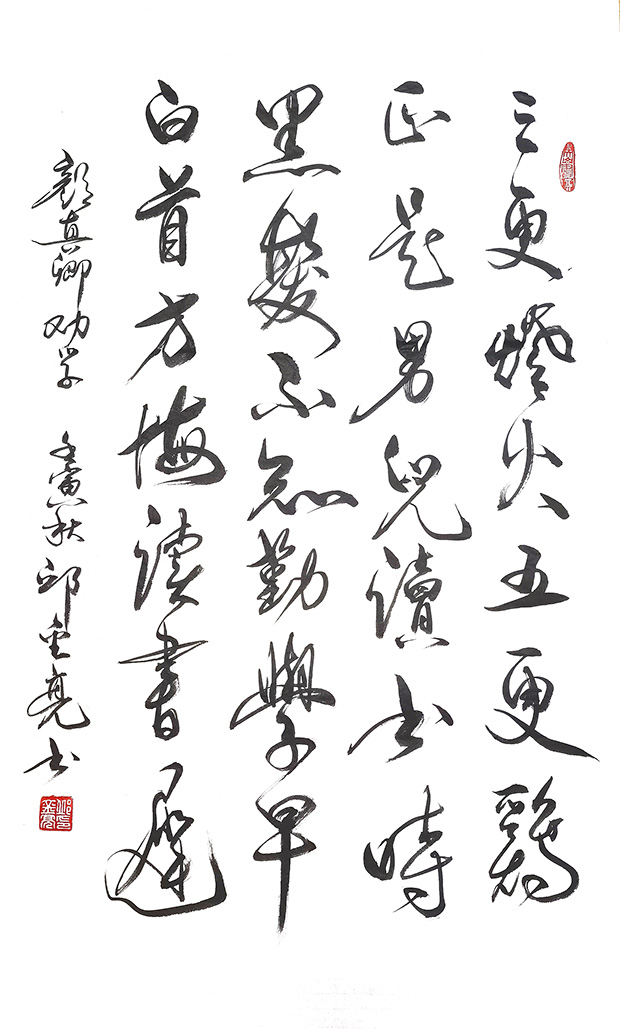 三更燈火五更鷄
正是男兒讀书時
黑髮不知勤學早
白首方悔读書遲
顏真卿劝学 壬寅秋 邱金亮书